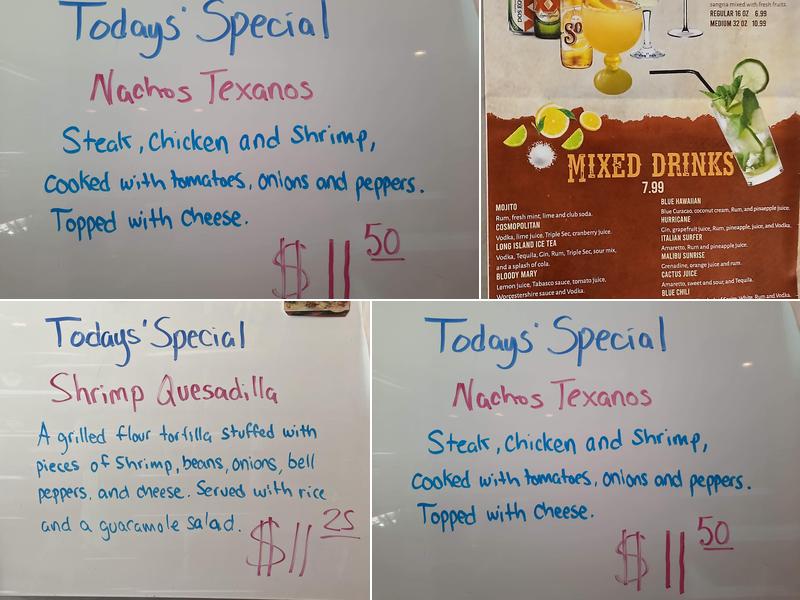 Todays' Special
Nachos Texanos
Steak, Chicken and Shrimp,
cooked with tomatoes, onions and peppers.
Topped with cheese.
$11 50
sangria mixed with fresh fruits.
REGULAR 16 OZ 6.99
MEDIUM 32 OZ 10.99
MIXED DRINKS
7.99
MOJITO
Rum, fresh mint, lime and club soda.
COSMOPOLITAN
Vodka, lime juice, Triple Sec, cranberry juice.
LONG ISLAND ICE TEA
Vodka, Tequila, Gin, Rum, Triple Sec, sour mix,
and a splash of cola.
BLOODY MARY
Lemon juice, Tabasco sauce, tomato juice,
Worcestershire sauce and Vodka.
BLUE HAWAIIAN
Blue Curacao, coconut cream, Rum, and pinapple juice.
HURRICANE
Gin, grapefruit juice, Rum, pineapple, juice, and Vodka.
ITALIAN SURFER
Amaretto, Rum and pineapple juice.
MALIBU SUNRISE
Grenadine, orange juice and rum.
CACTUS JUICE
Amaretto, sweet and sour, and Tequila.
BLUE CHILI
Rum and Vodka.
Todays' Special
Shrimp Quesadilla
A grilled flour tortilla stuffed with
pieces of Shrimp, beans, onions, bell
peppers, and cheese. Served with rice
and a guacamole salad.
$11 25
Todays' Special
Nachos Texanos
Steak, Chicken and Shrimp,
cooked with tomatoes, onions and peppers.
Topped with cheese.
$11 50